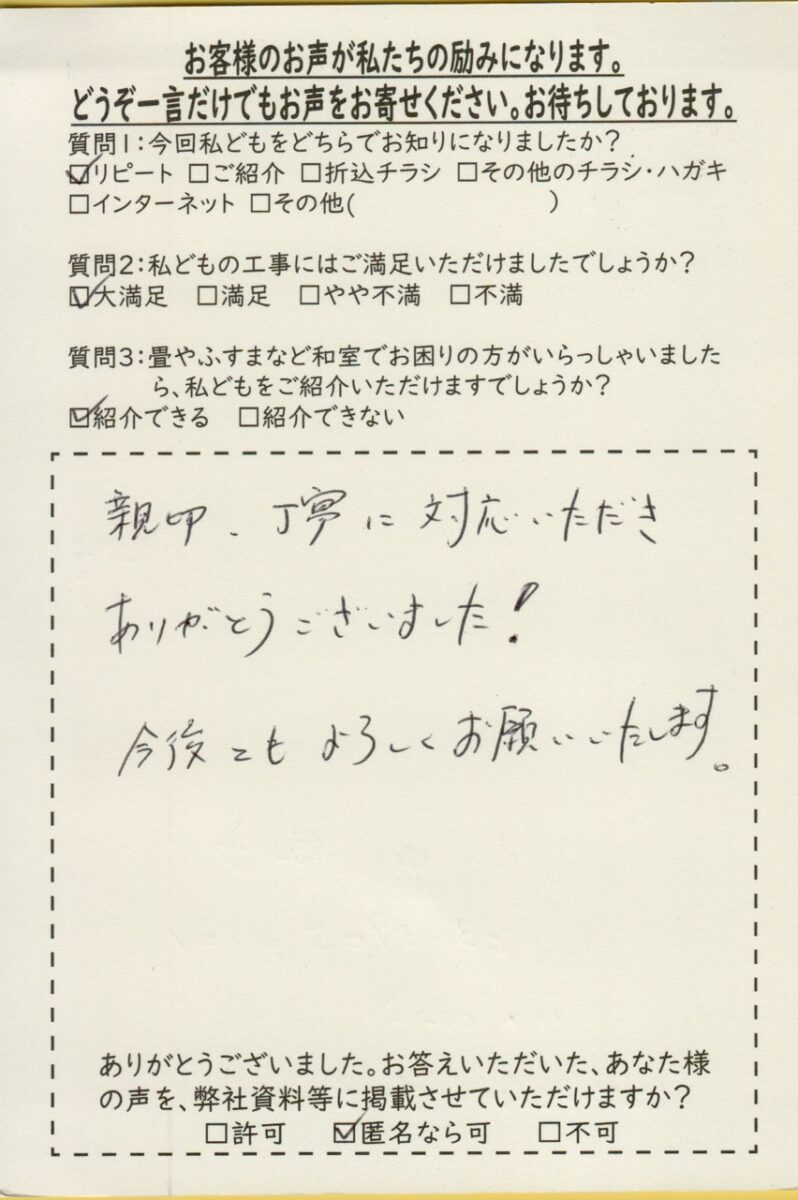 お客様のお声が私たちの励みになります。
どうぞ一言だけでもお声をお寄せください。お待ちしております。
質問1:今回私どもをどちらでお知りになりましたか?
☑リピート □ご紹介 □折込チラシ □その他のチラシ・ハガキ
□インターネット □その他( )
質問2:私どもの工事にはご満足いただけましたでしょうか?
☑大満足 □満足 □やや不満 □不満
質問3:畳やふすまなど和室でお困りの方がいらっしゃいました
ら、私どもをご紹介いただけますでしょうか?
☑紹介できる □紹介できない
親切、丁寧に対応いただき
ありがとうございました!
今後ともよろしくお願いいたします。
ありがとうございました。お答えいただいた、あなた様
の声を、弊社資料等に掲載させていただけますか?
□許可 ☑匿名なら可 □不可